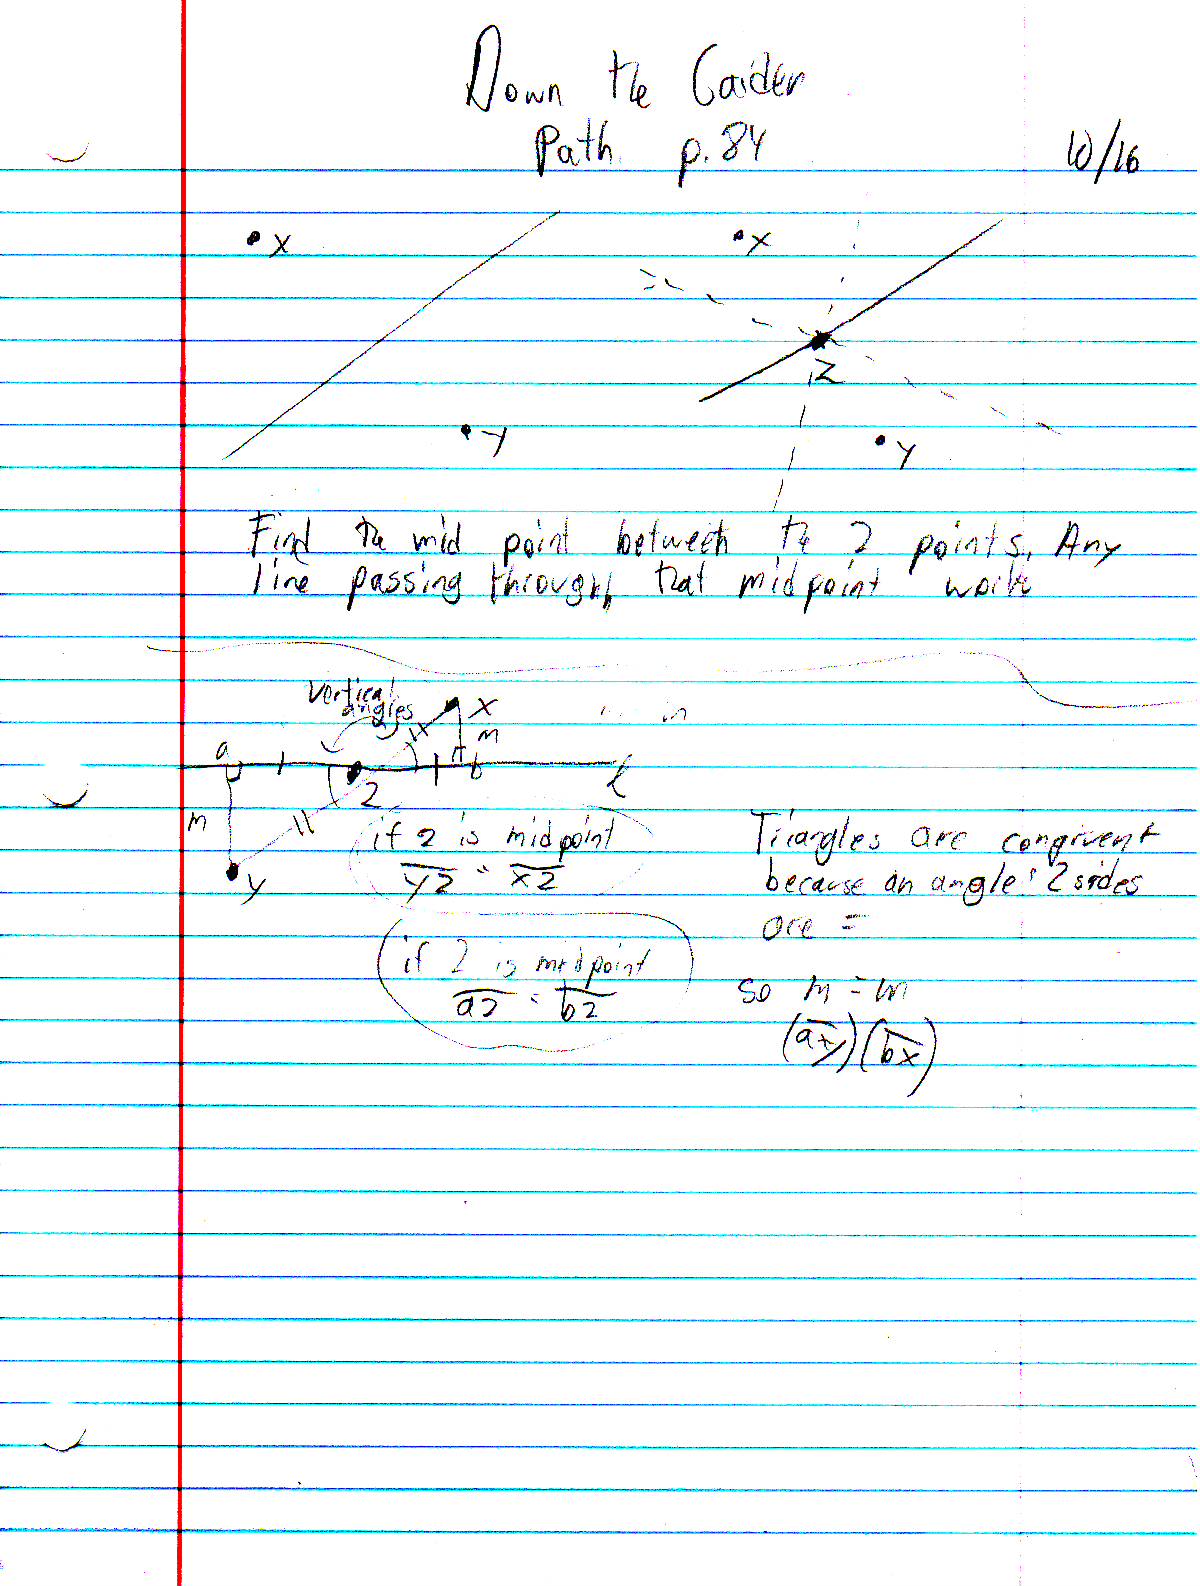 Down the Gaiden
Path p.84
10/16
X
X
Z
Y
Y
Find the mid point between the 2 points. Any
line passing through that midpoint work
vertical
angles
X
m
a
b
l
Z
m
y
if z is midpoint
yz = xz
Triangles are congruent
because an angle & 2 sides
are =
if z is midpoint
az = bz
so m = m
(ay)(bx)